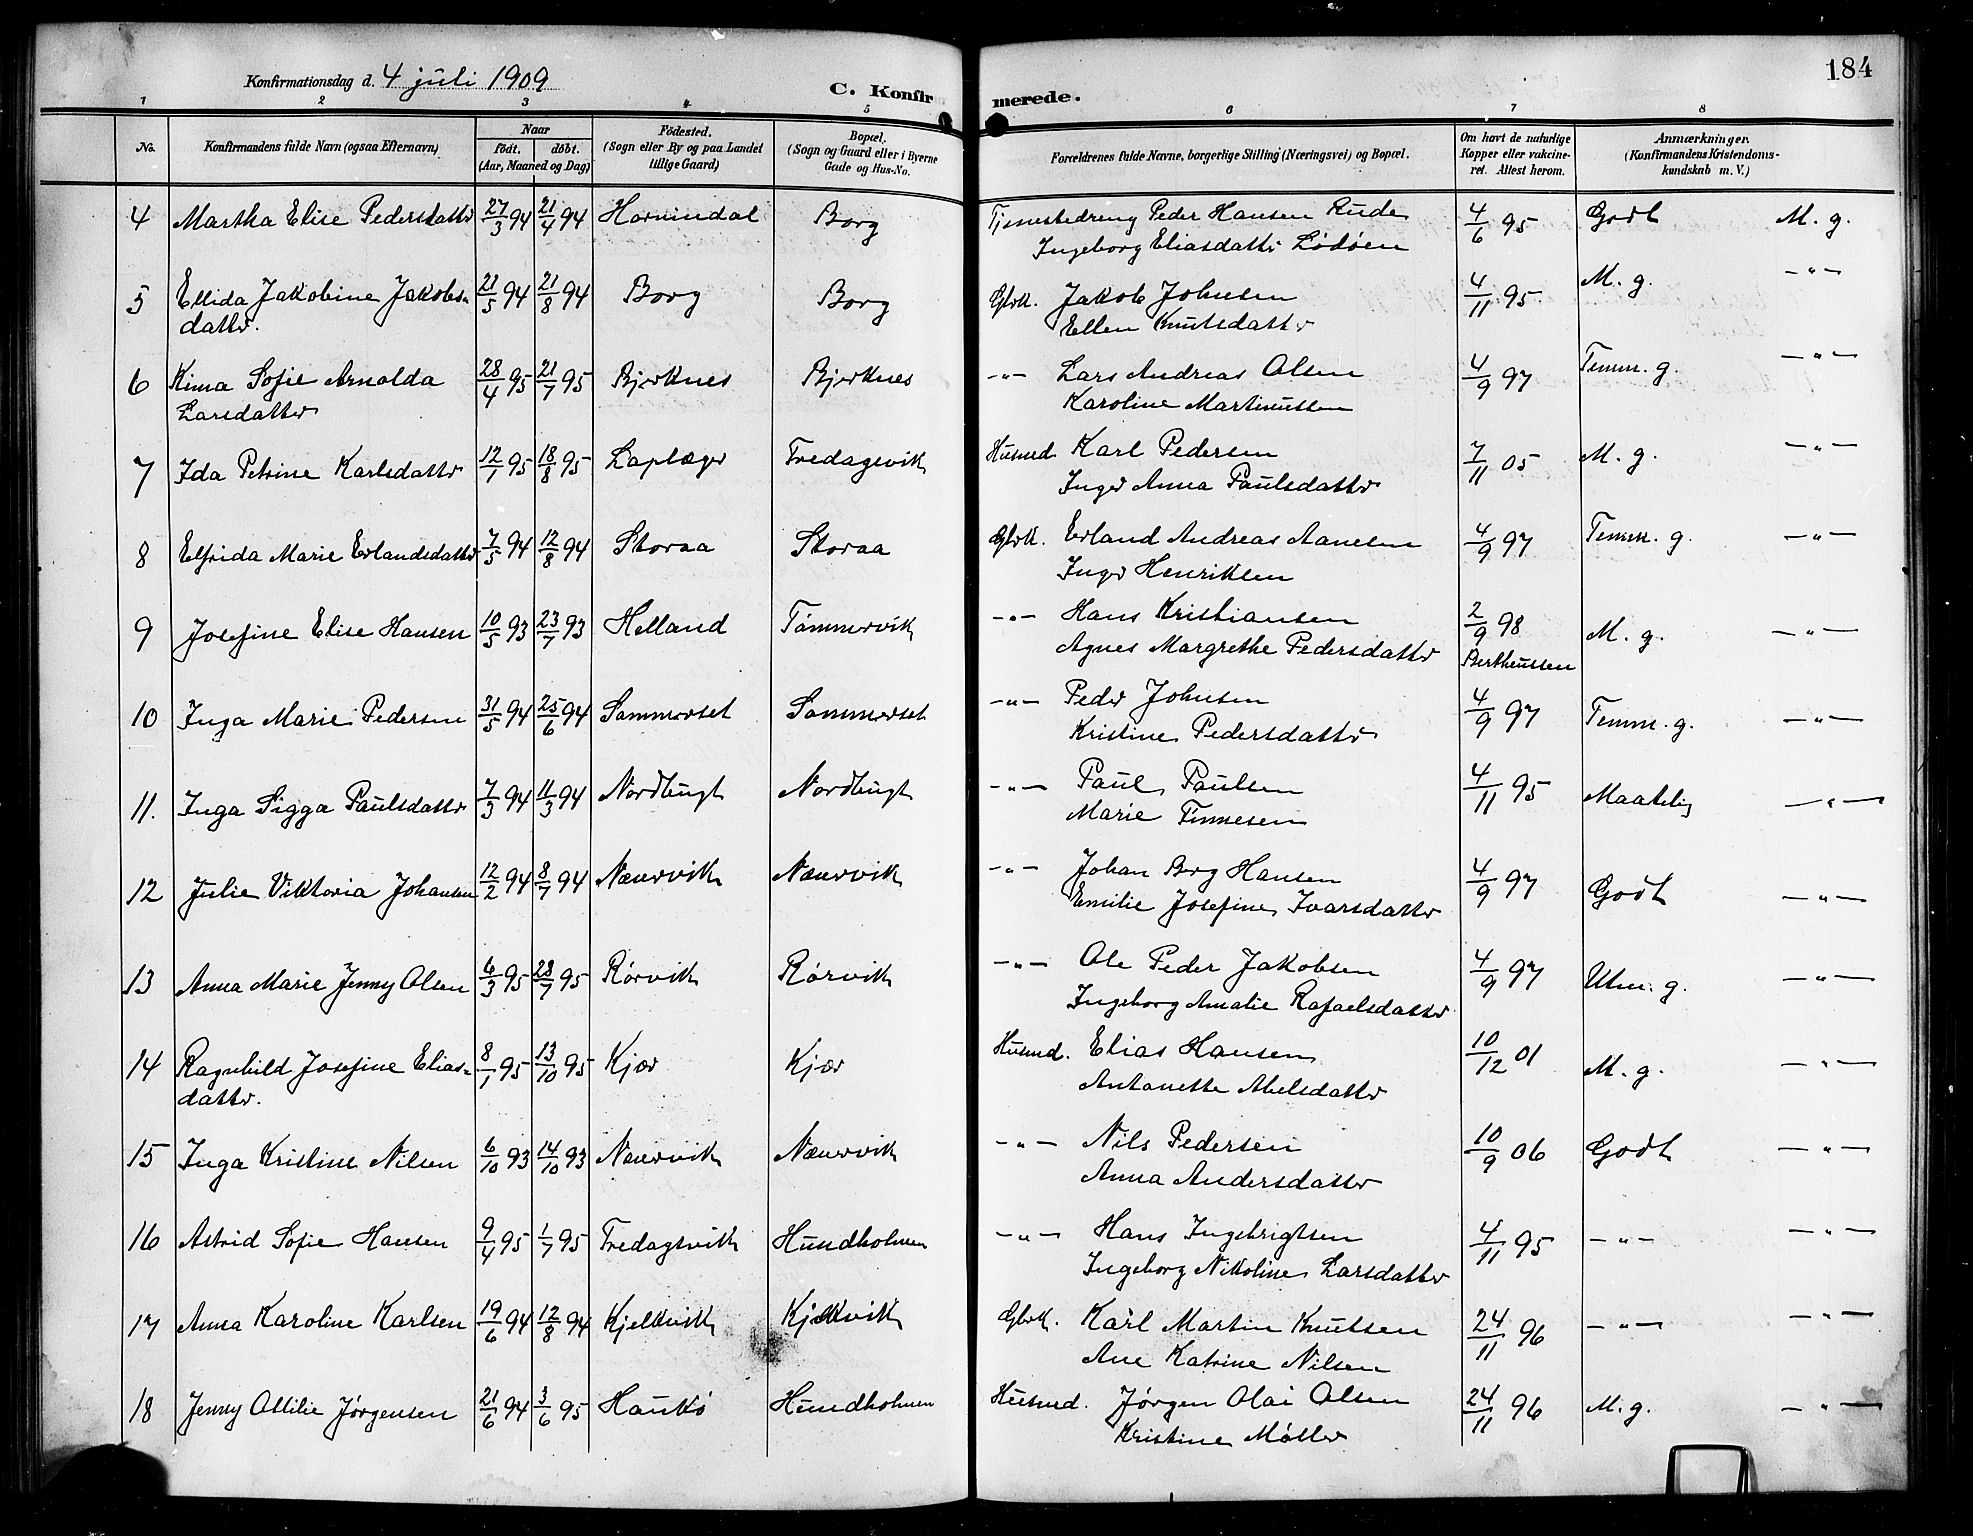 184
Konfirmationsdag d. 4 juli 1909
C. Konfirmerede.
1 2 3 4 5 6 7 8
No.
Konfirmandens fulde Navn (ogsaa Efternavn)
Naar
født. døbt.
(Aar, Maaned og Dag)
Födested.
(Sogn eller By og paa Landet
tillige Gaard)
Bopæl.
(Sogn og Gaard eller i Byerne
Gade og Hus-No.
Forældrenes fulde Navne, borgerlige Stilling (Næringsvei) og Bopæl.
Om havt de naturlige
Kopper eller vakcine-
ret. Attest herom.
Anmærkninger.
(Konfirmandens Kristendoms-
kundskab m. V.)
4 Martha Elise Pedersdatter 27/3 94 21/4 94 Hornindal Borg Tjenestedreng Peder Hansen Rude 4/6 95 Godt M. g.
Ingeborg Eliasdatter Lødøen
5 Ellida Jakobine Jakobs- 21/5 94 21/8 94 Borg Borg Gbrk. Jakob Johnsen 4/11 95 M. g. -"-
datter. Ellen Knutsdatter
6 Kima Sofie Arnolda 28/4 95 21/7 95 Bjerknes Bjerknes -"- Lars Andreas Olsen 4/9 97 Temm. g. -"-
Larsdatter Karoline Martinussen
7 Ida Petrine Karlsdatter 12/1 95 18/8 95 Laplæger Fredagsvik Husmd. Karl Pedersen 7/11 05 M. g. -"-
Inger Anna Paulsdatter
8 Elfrida Marie Erlandsdatter 7/5 94 12/8 94 Storaa Storaa Gbrk. Erland Andreas Aanesen 4/9 97 Temm. g. -"-
Inger Henriksen
9 Josefine Elise Hansen 10/5 93 23/7 93 Helland Tømmervik -"- Hans Kristiansen 2/9 98 M. g. -"-
Agnes Margrethe Pedersdatter Bertheussen
10 Inga Marie Pedersen 31/5 94 25/6 94 Sommerset Sommerset -"- Peder Johnsen 4/9 97 Temm. g. -"-
Kristine Pedersdatter
11. Inga Sigga Paulsdatter 7/3 94 11/3 94 Nordbugt Nordbugt -"- Paul Paulsen 4/11 95 Maatelig -"-
Marie Finnesen
12 Julie Viktoria Johansen 12/2 94 8/7 94 Næuervik Næuervik -"- Johan Berg Hansen 4/9 97 Godt -"-
Emilie Josefine Ivarsdatter
13 Anna Marie Jenny Olsen 6/3 95 28/7 95 Rørvik Rørvik -"- Ole Peder Jakobsen 4/9 97 Utm. g. -"-
Ingeborg Amalie Rafaelsdatter
14 Ragnhild Josefine Elias- 8/1 95 13/10 95 Kjær Kjær Husmd. Elias Hansen 10/12 01 M. g. -"-
datter. Antonette Abelsdatter
15 Inga Kristine Nilsen 6/10 93 14/10 93 Næuervik Næuervik -"- Nils Pedersen 10/9 06 Godt -"-
Anna Andersdatter
16 Astrid Sofie Hansen 9/4 95 1/7 95 Fredagsvik Hundholmen -"- Hans Ingebrigtsen 4/11 95 -"- -"-
Ingeborg Nikoline Larsdatter
17 Anna Karoline Karlsen 19/6 94 12/8 94 Kjelkvik Kjelkvik Gbrk. Karl Martin Knutsen 24/11 96 -"- -"-
Ane Katrine Nilsen
18 Jenny Ottilie Jørgensen 21/6 94 3/6 95 Haukø Hundholmen Husmd. Jørgen Olai Olsen 24/11 96 M. g. -"-
Kristine Møller